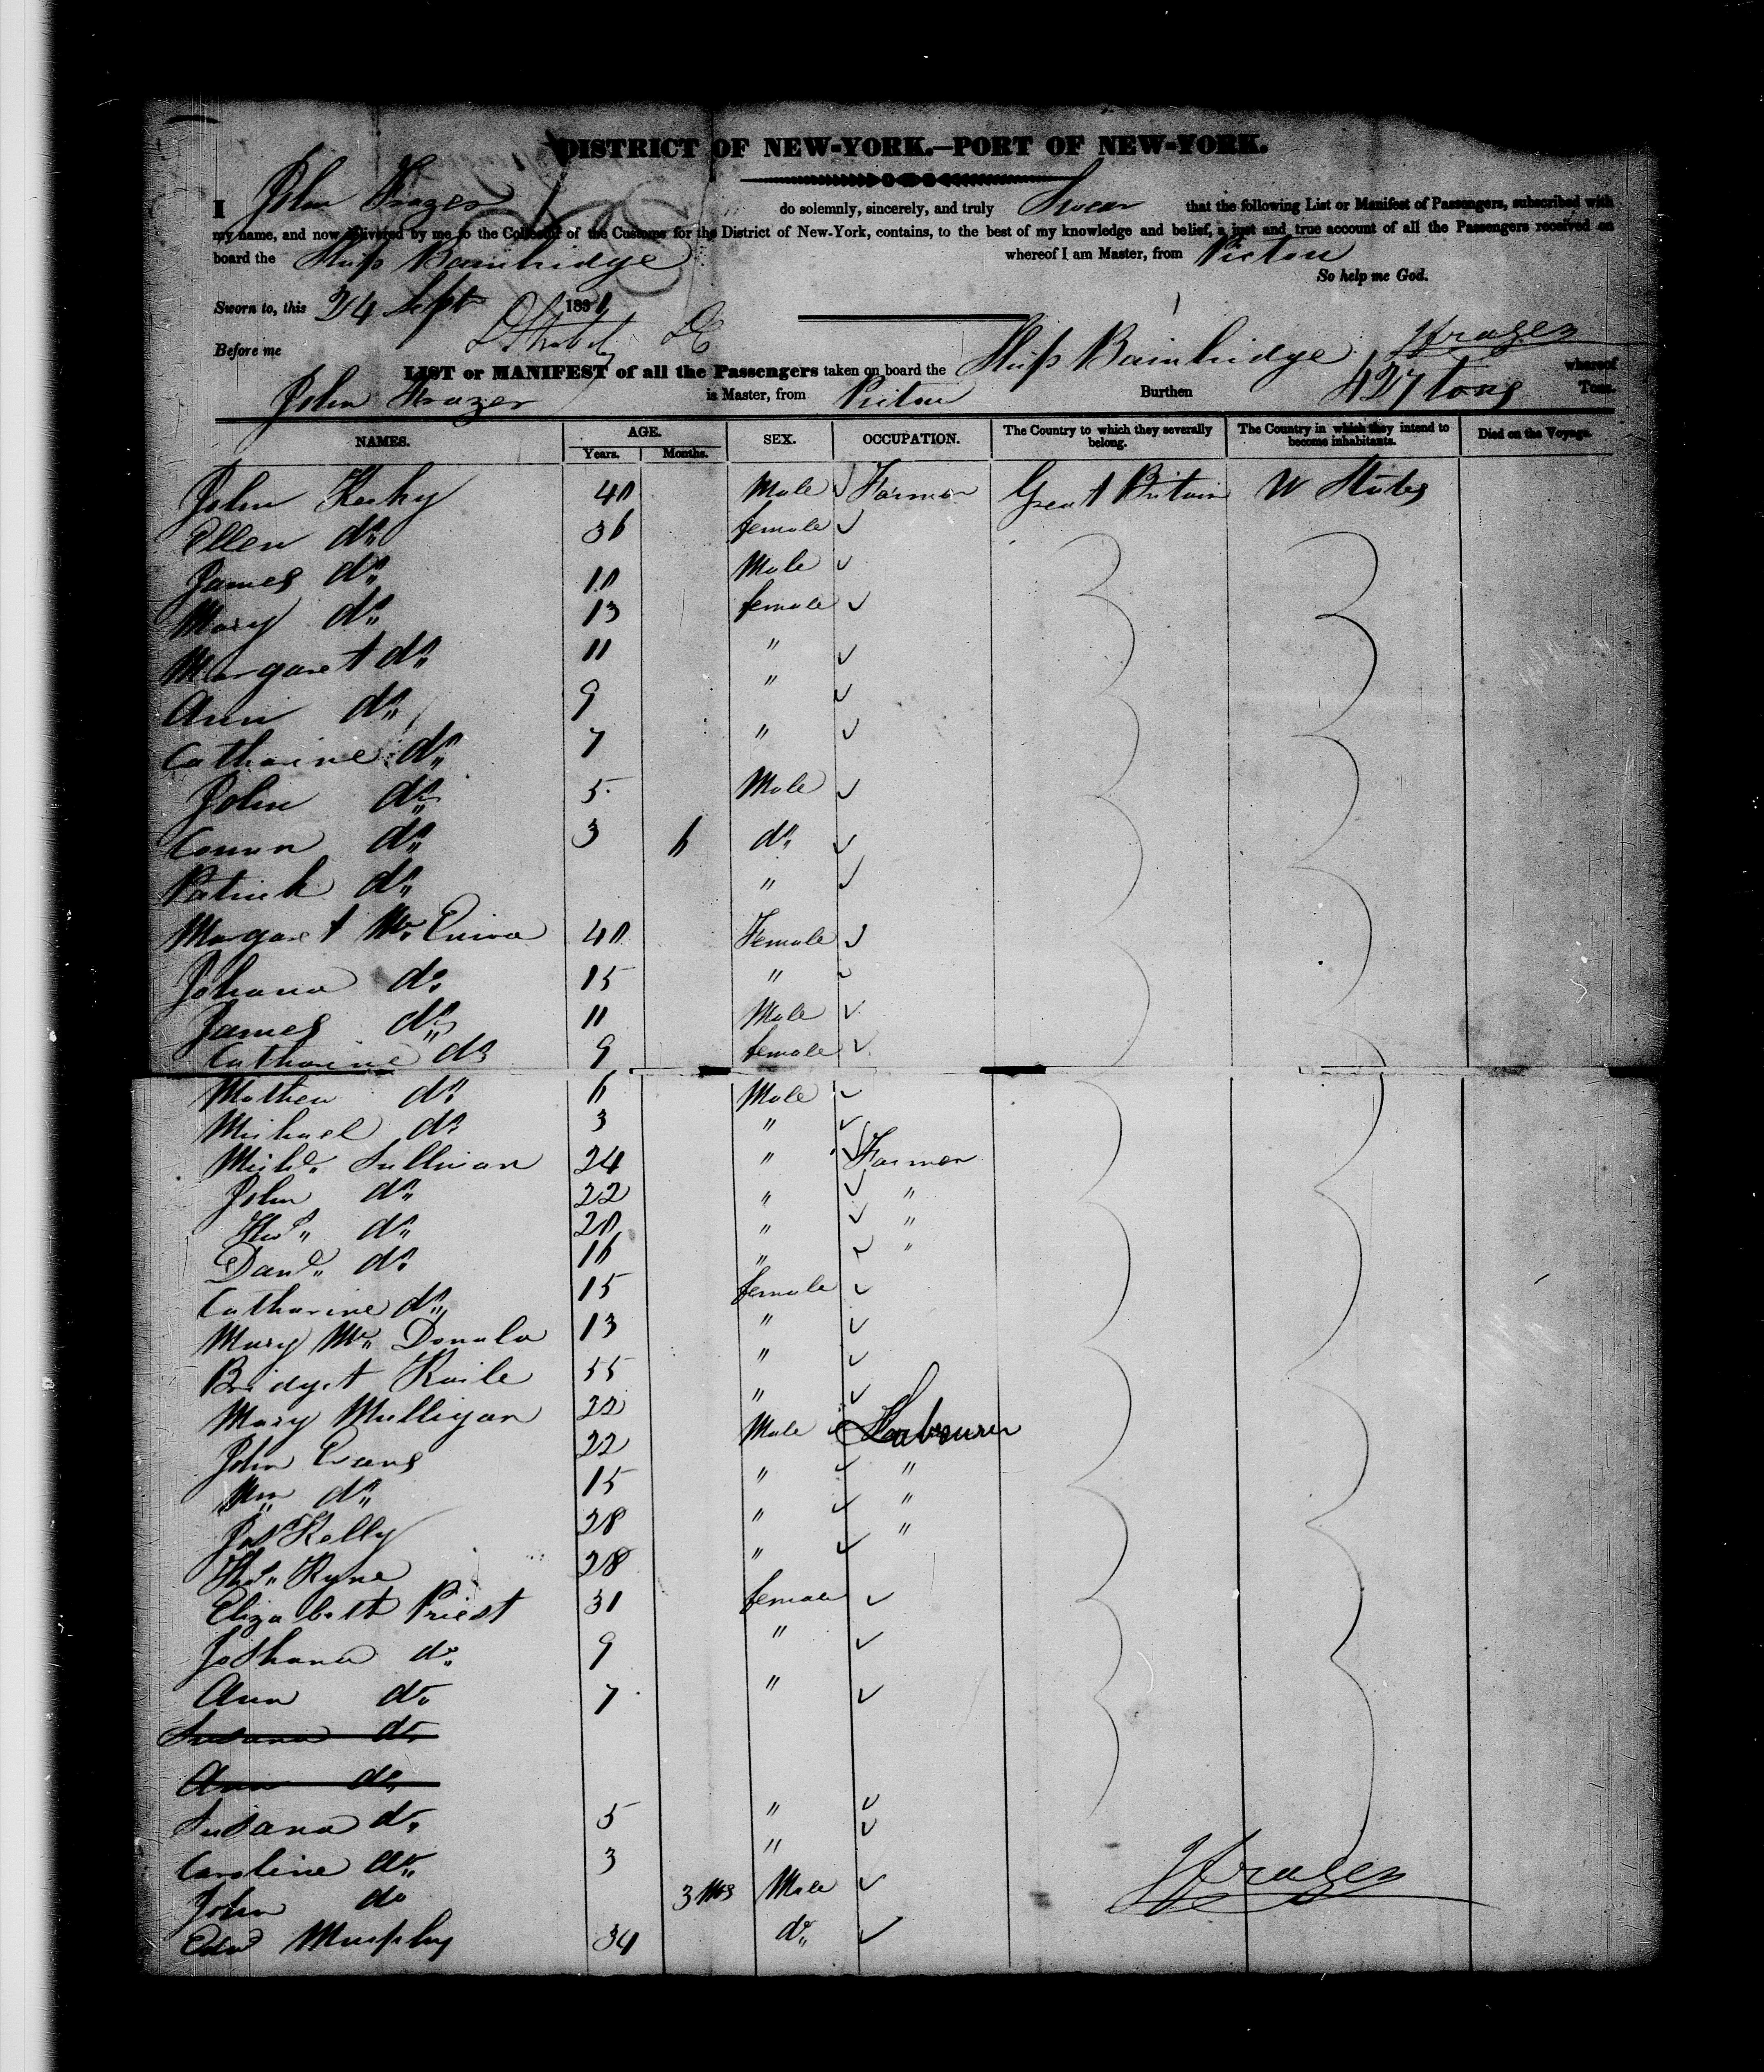 DISTRICT OF NEW-YORK.—PORT OF NEW-YORK.
I John Frazer do solemnly, sincerely, and truly Swear that the following List or Manifest of Passengers, subscribed with
my name, and now delivered by me to the Collector of the Customs for the District of New-York, contains, to the best of my knowledge and belief, a just and true account of all the Passengers received on
board the Ship Bainbridge whereof I am Master, from Pictou
So help me God.
Sworn to, this 24 Sept 1831
Before me JFrazer
LIST or MANIFEST of all the Passengers taken on board the Ship Bainbridge whereof
John Frazer is Master, from Pictou Burthen 427 tons Tons.
NAMES. AGE. SEX. OCCUPATION. The Country to which they severally belong. The Country in which they intend to become inhabitants. Died on the Voyage.
Years. Months.
John 40 Male Farmer Great Britain U States
Ellen do 36 female
James do 10 Male
Mary do 13 female
Margaret do 11 "
Ann do 9 "
Catharine do 7 "
John do 5 Male
do 3 6 do
Patrick do "
Margaret Mc 40 Female
Johana do 15 "
James do 11 Male
Catharine do 9 female
Mathew do 6 Male
Michael do 3 "
Michl Sullivan 24 " Farmer
John do 22 " "
Thos do 20 " "
Danl do 16 " "
Catharine do 15 female
Mary Mc Donald 13 "
Bridget 55 "
Mary Mulligan 22 "
John Evans 22 Male Labourer
Wm do 15 " "
Jas Kelly 28 " "
Thos Ryne 28 " "
Elizabeth Priest 31 female
Johana do 9 "
Ann do 7 "
Susana do
Ann do
Susana do 5 "
Caroline do 3 "
John do 3 Mos Male
Edwd Murphy 34 do
JFrazer